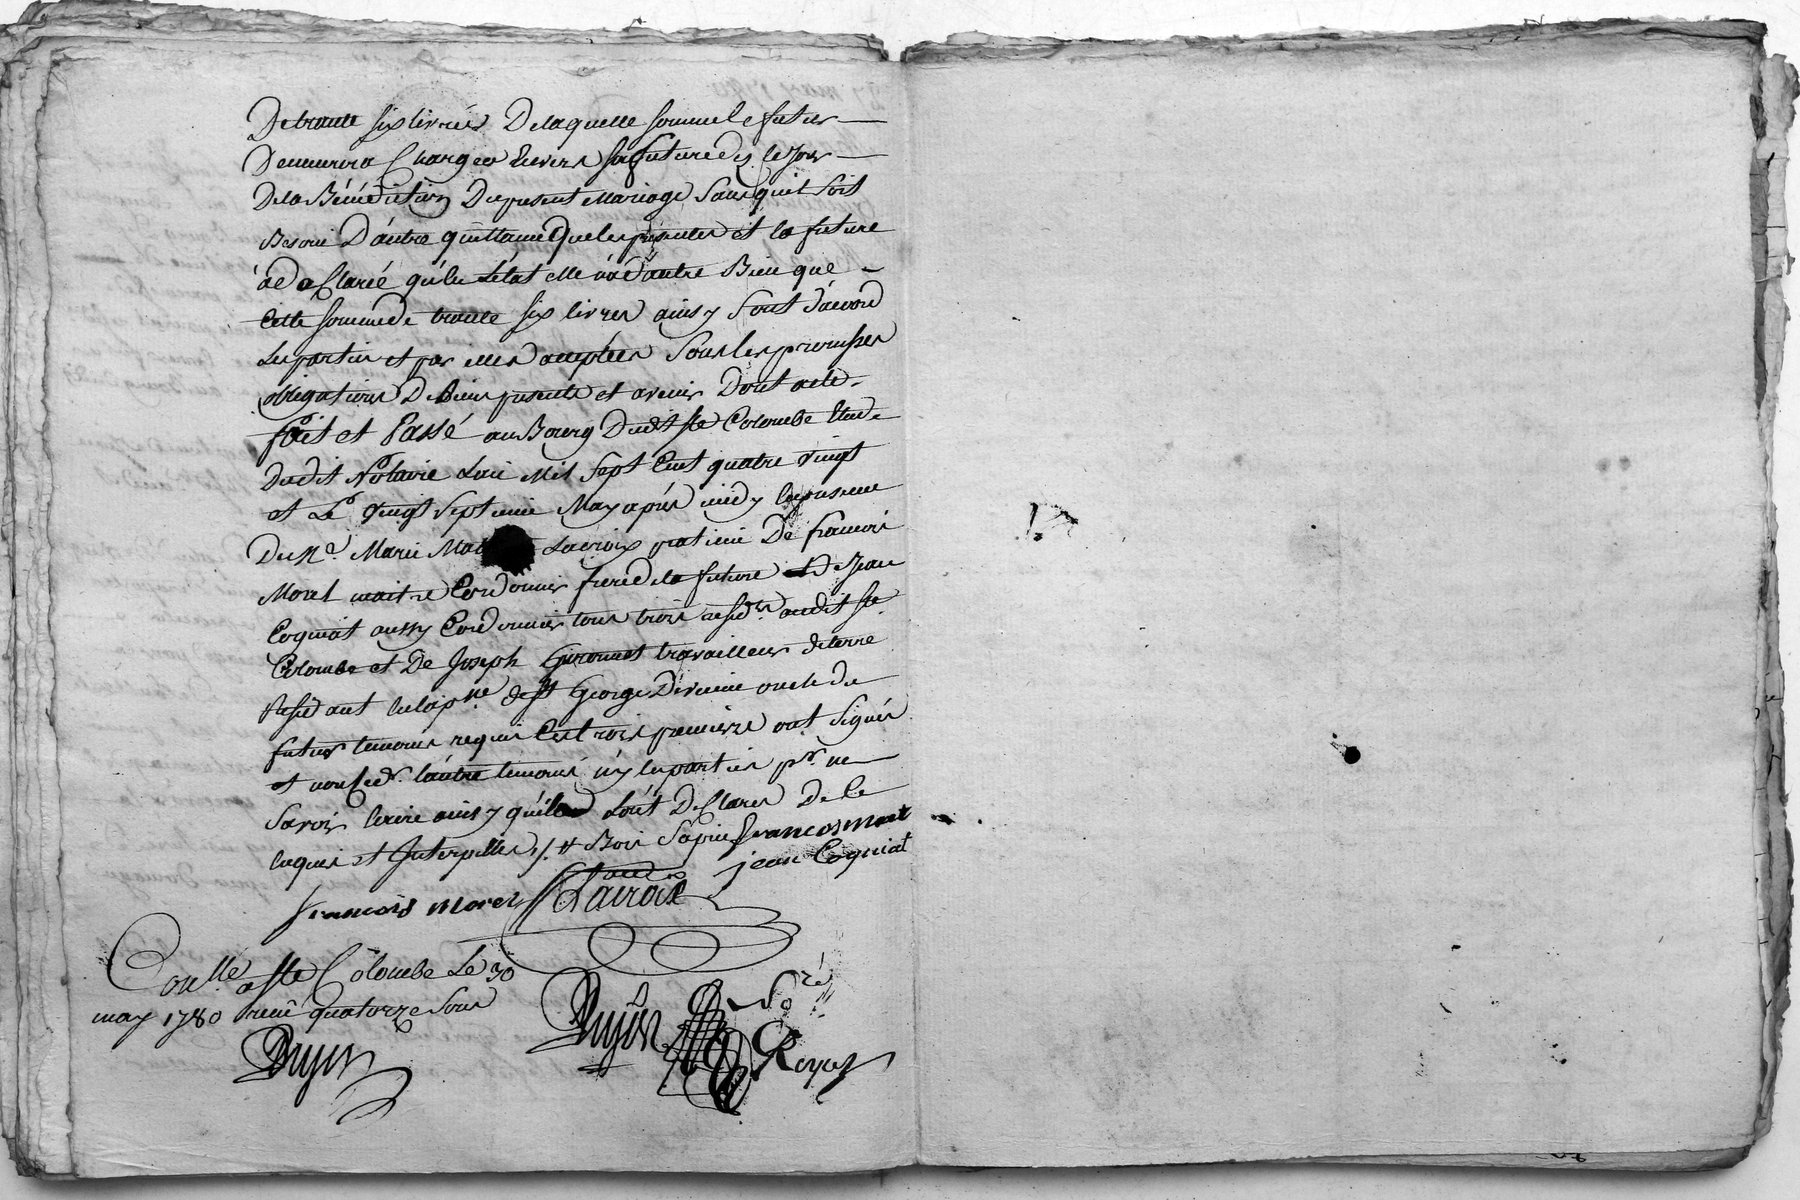 De trante six livres De laquelle somme le futur
Demeurera Chargéo Envers sa future des le Jour
De la Bénédiction Du présent Mariage Sans quil soit
Besoin D'autre quittance Que les presentes et la future
à declaré qu'en Létat elle n'a d'autre Bien que
Cette somme de trante six livres ainsy Sont d'acord
Les parties et par elles acceptées Sous les promesses
obligations De Biens presents et avenir Dont acte
fait et Passé au Bourg Dudit Ste Colombe Etude
Dudit Notaire Lan Mil Sept Cent quatre vingt
et Le vingt Septieme May après midy En presence
De Me. Marie Lacroix praticien De francois
Morel maitre Cordonnier frere de la future et De Jean
Cogniat aussy Cordonnier tous trois resid.ts audit Ste
Colombe et De Joseph travailleur de terre
Residant en la p.sse de St George De vienne oncle du
futur temoins requis Les trois premiers ont Signés
et non led. l'autre temoins n'y les parties p.r ne
Savoir Ecrire ainsy qu'ils L'ont Déclarés De ce
Enquis et Interpellés ./. + Bois Sapin francois morel
jean Cogniat
francois morel Lacroix
Con.lle a Ste Colombe Le 30
may 1780 reçu quatorze Sous
Dujon
Dujon No.re
Royal